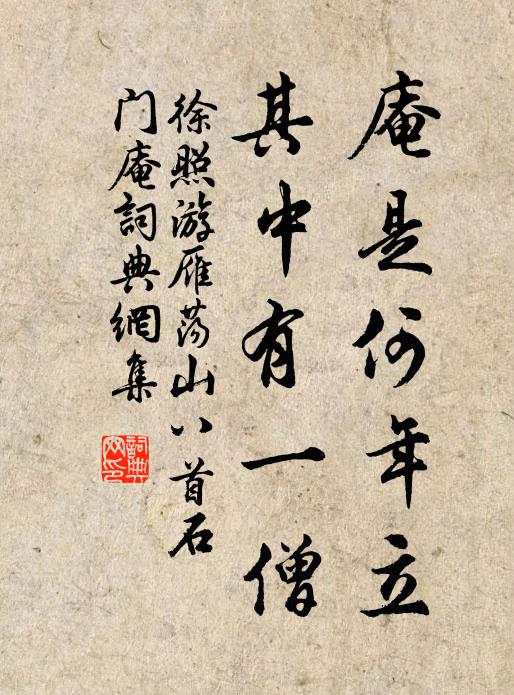 庵是何年立
其中有一僧
徐照游雁荡山八首石
门庵詞典網集
詞典網印